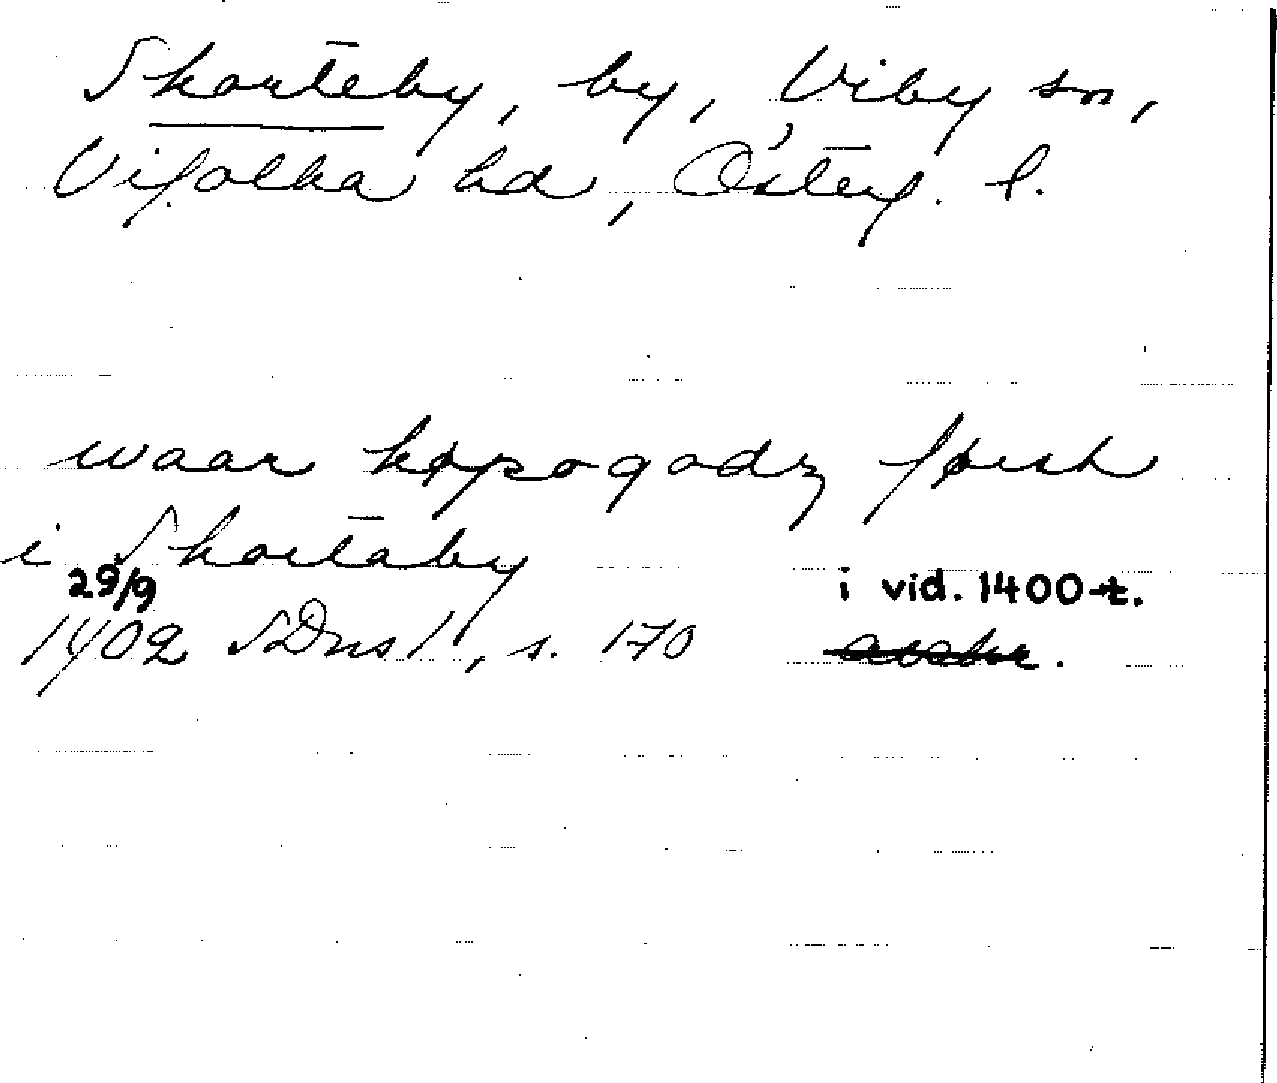 Skorteby, by, Viby sn,
Vifolka hd, Österg. l.
waar køpogodz først
i Skortaby
29/9 i vid. 1400-t.
1402 SDns 1, s. 170 avskr.